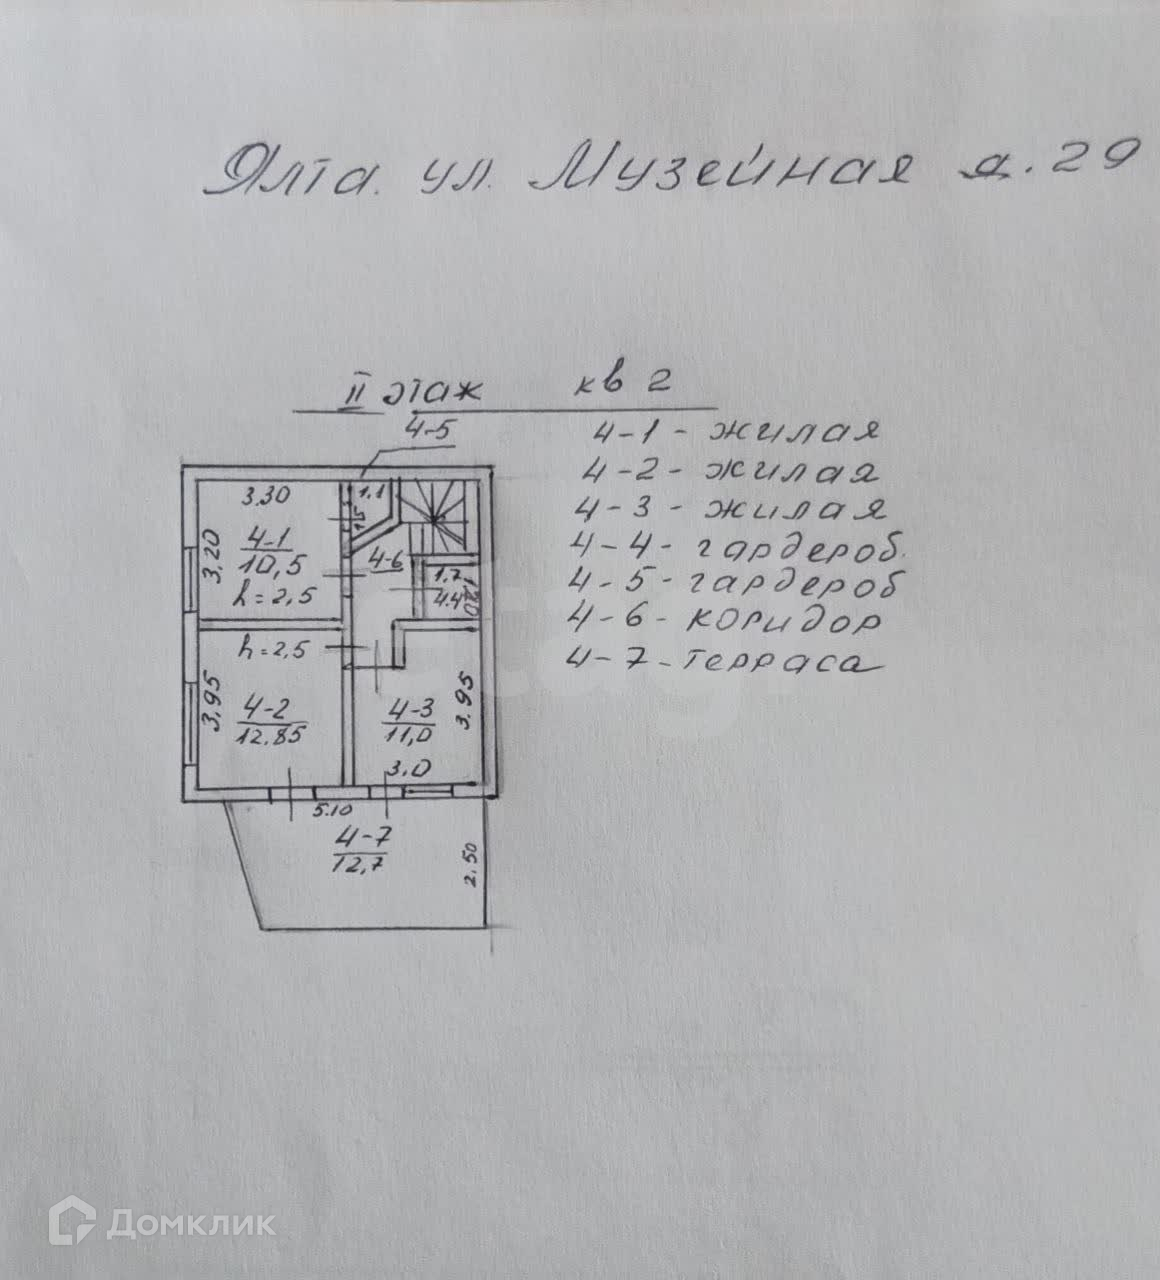 Ялта. ул. Музейная д. 29
II этаж кв 2
4-5
4-1 - жилая
4-2 - жилая
4-3 - жилая
4-4 - гардероб.
4-5 - гардероб
4-6 - коридор
4-7 - терраса
3,30
1,1
3,20
4-1
10,5
h=2,5
15
4-6
1,7
4.4
1,20
h=2,5
3,95
4-2
12.85
4-3
11,0
3.95
3.0
5.10
4-7
12,7
2.50
Домклик